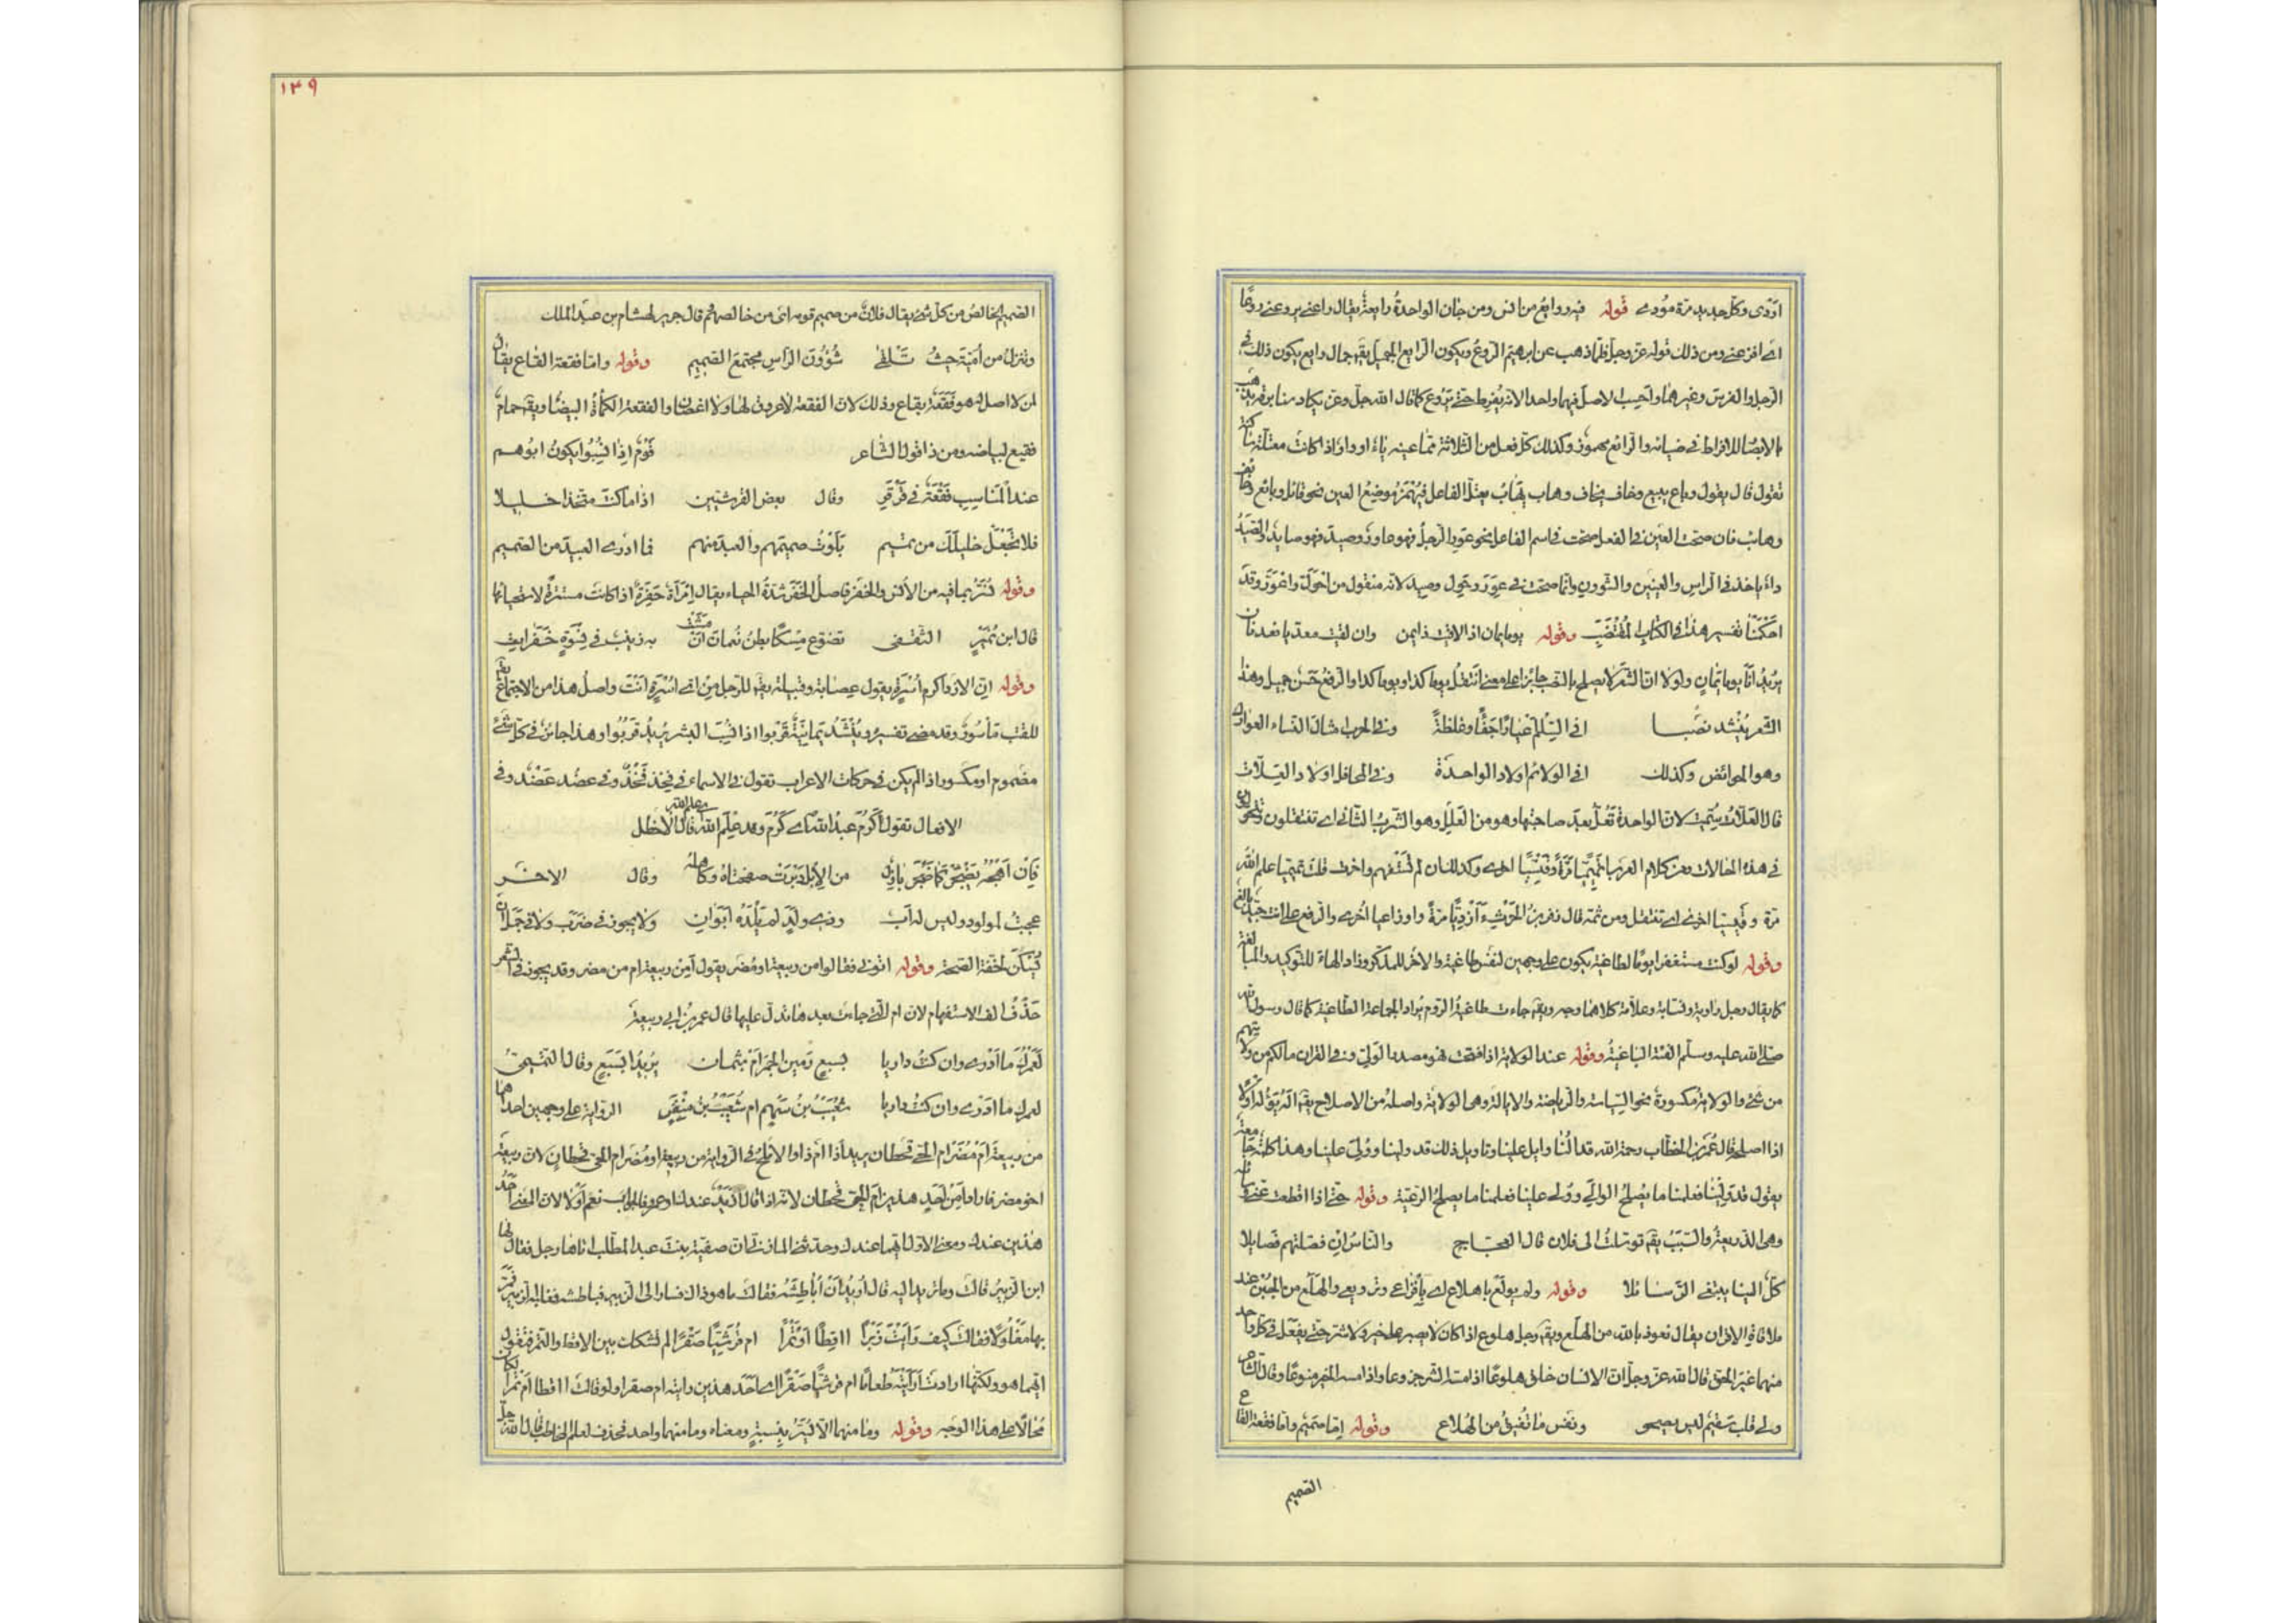 اودى وكل جديد مرة مودى قوله فيه روايع من انس ومن جان الواحدة رايعة يقال راعنى يروعنى روعا
اى افزعنى ومن ذلك قوله عز وجل فلما ذهب عن ابرهيم الروع ويكون الرايع الجميل يقم جمال رايع يكون ذلك فى
الرجل والفرس وغيرهما واحسب الاصل فيهما واحدا لانه يفرط حتى يروع كما قال الله جل وعز يكاد سنا برقه يذهب
بالابصار للافراط فى ضيائه والرائع مهموز وكذلك كل فعل من الثلاثة مما عينه ياء او واو اذا كانت معتلة ساكنة
تقول قال يقول وباع يبيع وخاف يخاف وهاب يهاب يعتل الفاعل فيهمز موضع العين نحو قائل وبائع وخائف
وهائب فان صحت العين فى الفعل صحت فى اسم الفاعل نحو عور الرجل فهو عاور وصيد فهو صايد والصيد
داء ياخذ فى الراس والعينين والشوون وانما صحت فى عور وحول وصيد لانه منقول من احول واعور وقد
احكمنا تفسير هذا فى الكتاب المقتضب وقوله يوما يمان اذا لاقيت ذا يمن وان لقيت معديا فعدنان
يريد انا يوما يمان ولولا ان الشعر لا يصلح بالنصب جائزا على معنى اتنتقل يوما كذا ويوما كذا والرفع حسن جميل وهذا
الشعر ينشد نصبا افى السلم اعيارا جفاء وغلظة وفى الحرب امثال النساء العوارك
وهو الحوائض وكذلك افى الولائم اولاد الواحدة وفى المحافل اولاد العلات
قال العلات سميت لان الواحدة تعل بعد صاحبتها وهو من العلل وهو الشرب الثانى اى تنتقلون وتتلونون
فى هذه الحالات ومن كلام العرب اتميميا مرة وقيسيا اخرى وكذلك ان لم تستفهم واخبرت قلت تميميا علم الله
مرة وقيسيا اخرى اى تنتقل ومن ثمة قال زفر بن الحرث ازديا مرة واوزاعيا اخرى والرفع على انت جيد بالغ
وقوله لو كنت مستغفرا يوما لطاغية يكون على وجهين لنفس طاغية والاخر للمذكر وزاد الهاء للتوكيد والمبالغة
كما يقال رجل راوية ونسابة وعلامة كلاهما وجه ويقم جاءت طاغية الروم يراد الجماعة الطاغية كما قال رسول الله
صلى الله عليه وسلم الفئة الباغية وقوله عند الولاية اذا فتحت فهو مصدر الولى وفى القران ما لكم من ولايتهم
من شئ والولاية مكسورة نحو السياسة والرياضة والايالة وهى الولاية واصله من الاصلاح يقم اله يؤله اولا
اذا اصلحه قال عمر بن الخطاب رحمة الله قد النا وايل علينا وتاويل ذلك قد ولينا وولى علينا وهذا كلمة جامعة
يقول قد ولينا فعلمنا ما يصلح الوالى وولى علينا فعلمنا ما يصلح الرعية وقوله حتى اذا انقطعت عنى وسائله
وهى الذريعة والسبب يقم توسلت الى فلان قال العجاج والناس ان فصلتهم فصايلا
كل الينا يبتغى الوسائلا وقوله ولم يولع باهلاعى اى بافزاعى وترويعى والهلع من الجبن عند
ملاقاة الاقران يقال نعوذ بالله من الهلع ويقم رجل هلوع اذا كان لا يصبر على خير ولا شر حتى يفعل فى كل واحد
منهما غير الحق قال الله عز وجل ان الانسان خلق هلوعا اذا مسه الشر جزوعا واذا مسه الخير منوعا وقال الشاعر
ولى قلب سقيم ليس يصحى ونفس ما تفيق من الهلاع وقوله اما صميم واما فقعة القاع
الصميم
١٣٩
الصميم الخالص من كل شئ يقال فلان من صميم قومه اى من خالصهم قال جرير لهشام بن عبد الملك
وتنزل من امية حيث تلقى شؤون الراس مجتمع الصميم وقوله واما فقعة القاع يقال
لمن لا اصل له هو فقعة بقاع وذلك لان الفقعة لا عروق لها ولا اغصان والفقعة الكماة البيضاء ويقم حمام
فقيع لبياضه ومن ذا قول الشاعر قوم اذا نسبوا يكون ابوهم
عند المناسب فقعة فى قرقر وقال بعض القرشيين اذا ما كنت متخذا خليلا
فلا تجعل خليلك من تميم بلوت صميمهم والعبد منهم فما ادرى العبيد من الصميم
وقوله لنتر بما فيه من الانس والخفر فاصل الخفر شدة الحياء يقال امراة خفرة اذا كانت مستترة لاستحيائها
قال ابن نمير الثقفى تضوع مسكا بطن نعمان ان مشت به زينب فى نسوة خفرات
وقوله ان الازد اكرم اسرة يقول عصابة وقبيلة يقم للرجل من اى اسرة انت واصل هذا من الاجتماع يقم
للقتب ماسور وقد مضى تفسيره وينشد يمانية قربوا اذا نسب البشر يريد قربوا وهذا جائز فى كل شئ
مضموم او مكسور اذا لم يكن فى حركات الاعراب تقول فى الاسماء فى فخذ فخذ وفى عضد عضد وفى
الافعال تقول اكرم عبد الله اى كرم وقد علم الله اى علم الله قال الاخطل
فان اهجه يضجر كما ضجر بازل من الابل دبرت صفحتاه وكاهله وقال الاخر
عجبت لمولود وليس له اب وذى ولد لم يلده ابوان ولا يجوز فى ضرب ولا فى حمل ان
يسكن لخفة الفتحة وقوله اتونى فقالوا من ربيعة او مضر يقول امن ربيعة ام من مضر وقد يجوز فى الشعر
حذف الف الاستفهام لان ام التى جاءت بعدها تدل عليها قال عمر بن ابى ربيعة
لعمرك ما ادرى وان كنت داريا بسبع رمين الجمر ام بثمان يريد ابسبع وقال التميمى
لعمرك ما ادرى وان كنت داريا شعيب بن سهم ام شعيب بن منقر الرواية على وجهين احدهما
من ربيعة ام مضر ام الحى قحطان يريد اذا ام ذا والاملح فى الرواية من ربيعة او مضر ام الحى قحطان لان ربيعة
اخو مضر فاراد امن احد هذين ام الحى قحطان لانه اذا قال ازيد عندك او عمرو فالجواب نعم او لا لان المعنى احد
هذين عندك ومعنى الاول ايهما عندك وحدثنى المازنى قال ان صفية بنت عبد المطلب اتاها رجل فقال لها
ابن الزبير قالت وما تريد اليه قال اريد ان اباطشه فقالت ها هو ذاك فصار الى الزبير فباطشه فغلبه الزبير فمر
بها مفلولا فقالت كيف رايت زبرا ااقطا او تمرا ام قرشيا صقرا لم تشكك بين الاقط والتمر فتقول
ايهما هو ولكنها ارادت ارايته طعاما ام قرشيا صقرا اى احد هذين رايته ام صقرا ولو قالت ااقطا ام تمرا لكان
محالا على هذا الوجه وقوله وما منهما الا يسر بنسبة ومعناه وما منهما واحد فحذف لعلم المخاطب قال الله جل